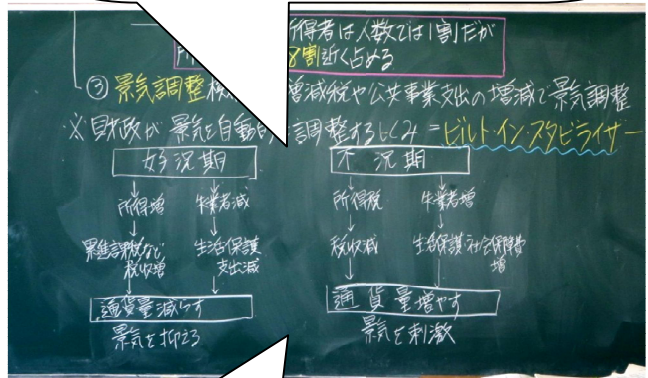 所得者は人数では1割だが
8割近く占める
③景気調整機 増減税や公共事業支出の増減で景気調整
※財政が景気を自動的 調整するしくみ=ビルト・イン・スタビライザー
好況期
所得増 失業者減
累進課税など 生活保護
税収増 支出減
通貨量減らす
景気を抑える
不況期
所得税 失業者増
税収減 生活保護・社会保障費
増
通貨量増やす
景気を刺激